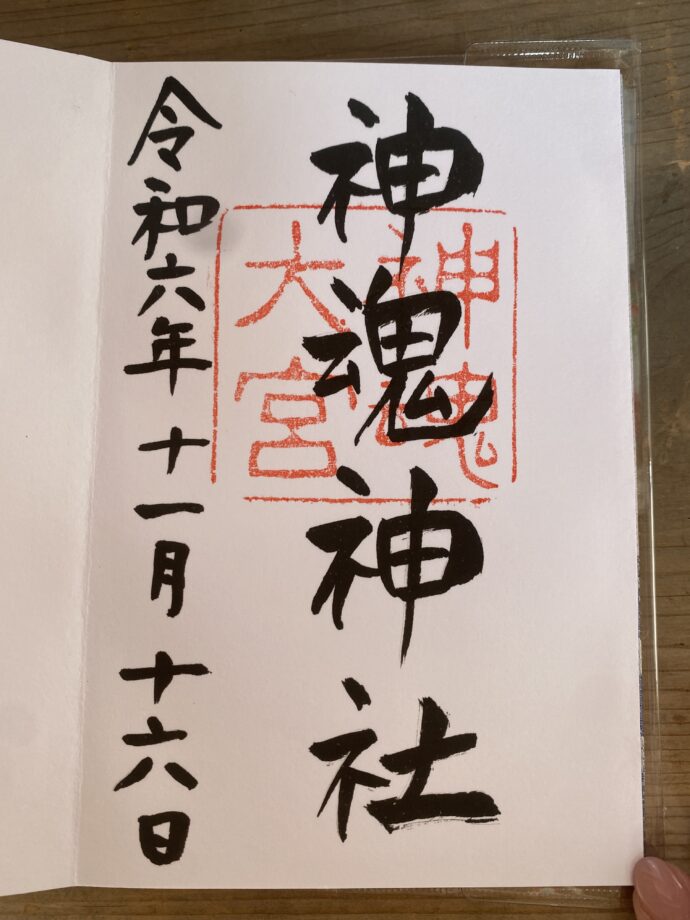 神魂神社
神魂
大宮
令和六年十一月十六日